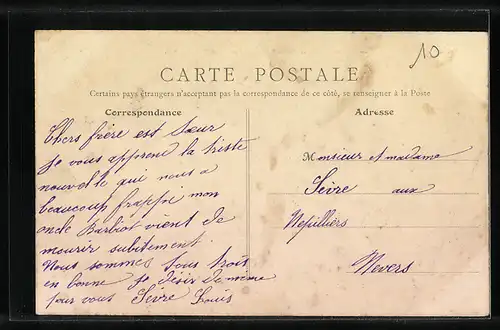 10
CARTE POSTALE
Certains pays étrangers n'acceptant pas la correspondance de ce côté, se renseigner à la Poste
Correspondance
Chers frère est Sœur
Je vous apprend la triste
nouvelle qui nous a
beaucoup frappé mon
oncle Barbiot vient de
mourir subitement
Nous sommes tous trois
en bonne Je désir de même
pour vous Seivre Louis
Adresse
Monsieur et madame
Seivre aux
Nevers